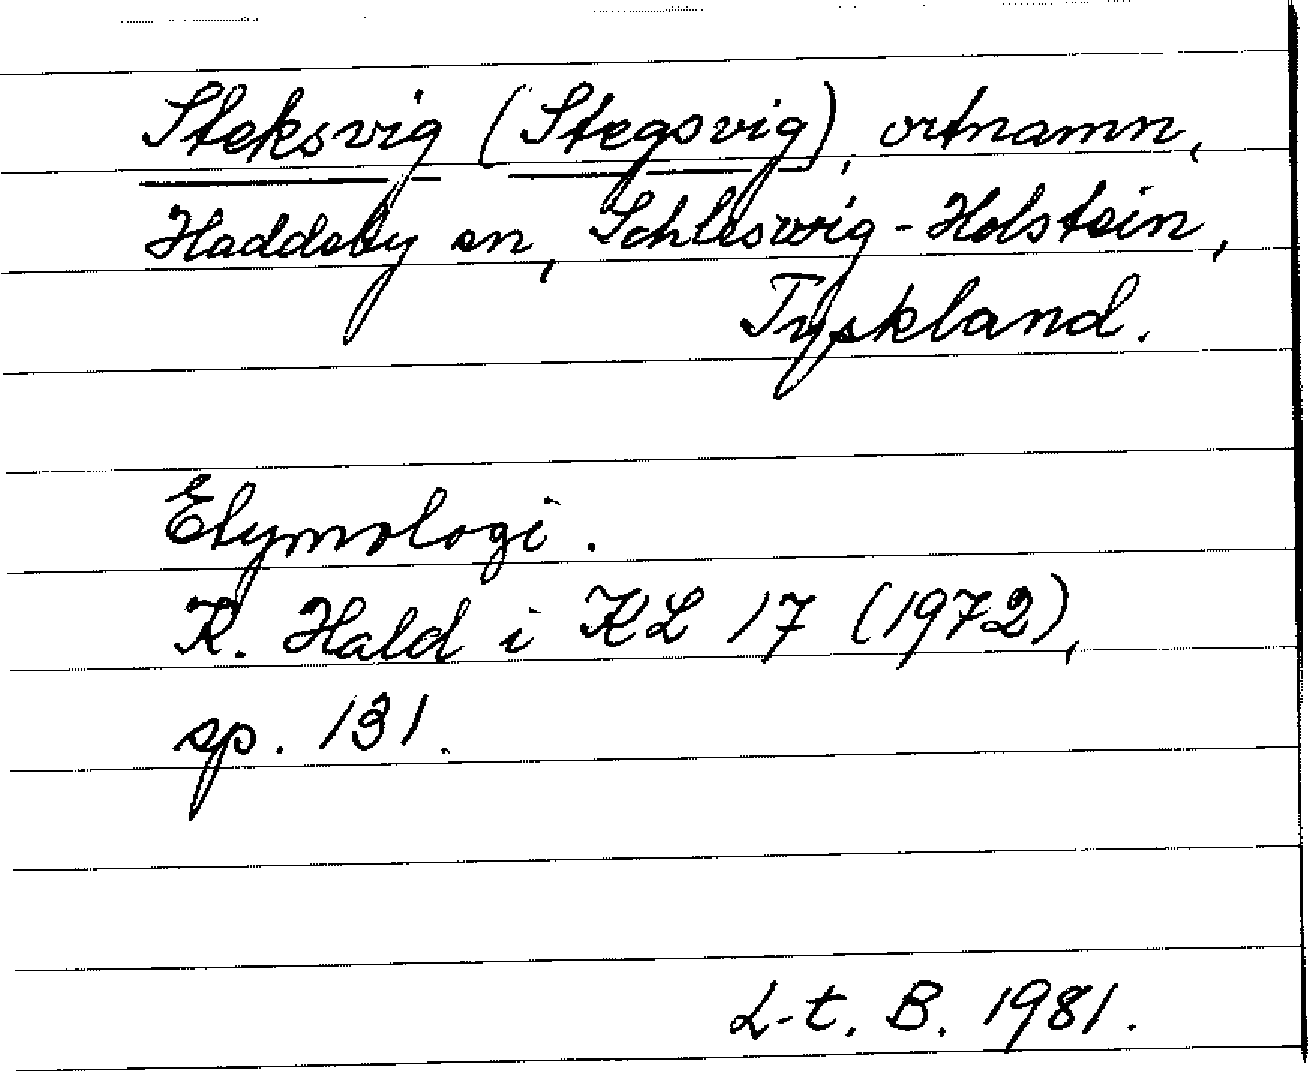 Steksvig (Stegsvig), ortnamn,
Haddeby sn, Schleswig-Holstein,
Tyskland.
Etymologi.
K. Hald i KL 17 (1972),
sp. 131.
L-t. B. 1981.